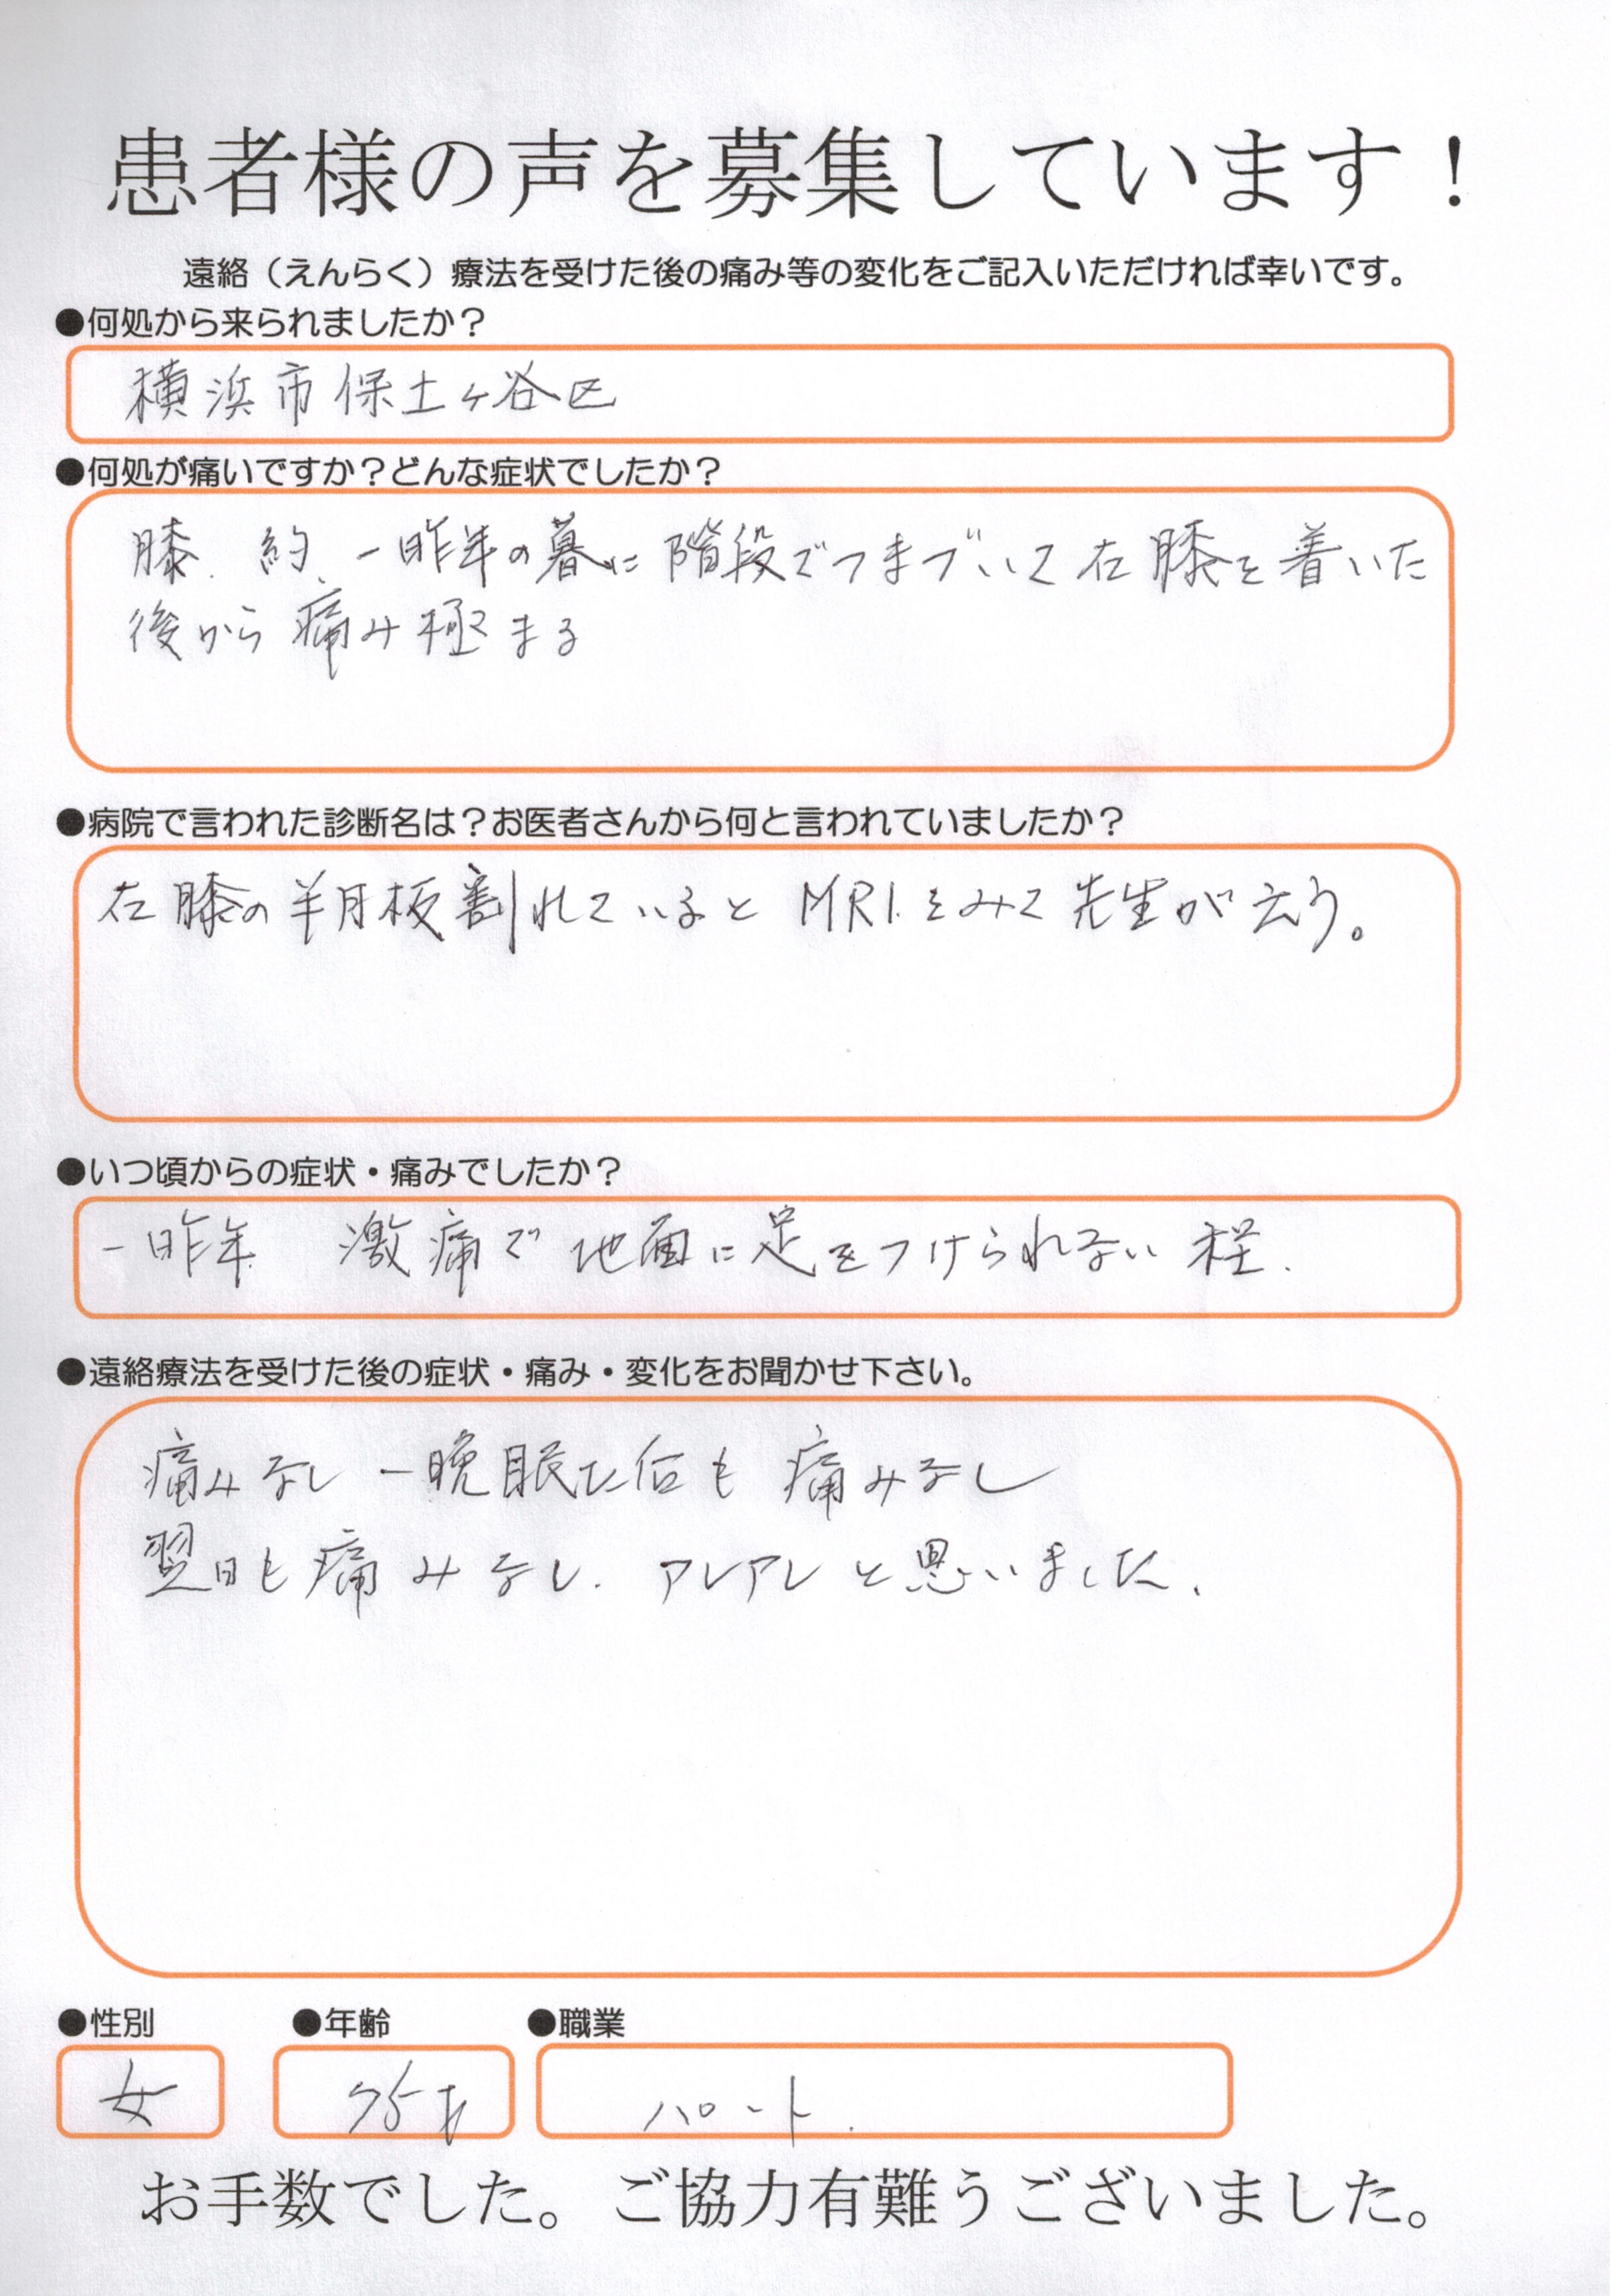 患者様の声を募集しています！
遠絡（えんらく）療法を受けた後の痛み等の変化をご記入いただければ幸いです。
●何処から来られましたか？
横浜市保土ヶ谷区
●何処が痛いですか？どんな症状でしたか？
膝．約、一昨年の暮に階段でつまづいて右膝を着いた
後から痛み極まる
●病院で言われた診断名は？お医者さんから何と言われていましたか？
右膝の半月板割れているとMRI.をみて先生が云う。
●いつ頃からの症状・痛みでしたか？
一昨年 激痛で地面に足をつけられない程．
●遠絡療法を受けた後の症状・痛み・変化をお聞かせ下さい。
痛みなし 一晩眠た后も 痛みなし
翌日も痛みなし．アレアレと思いました．
●性別 ●年齢 ●職業
女 75才 パート．
お手数でした。ご協力有難うございました。